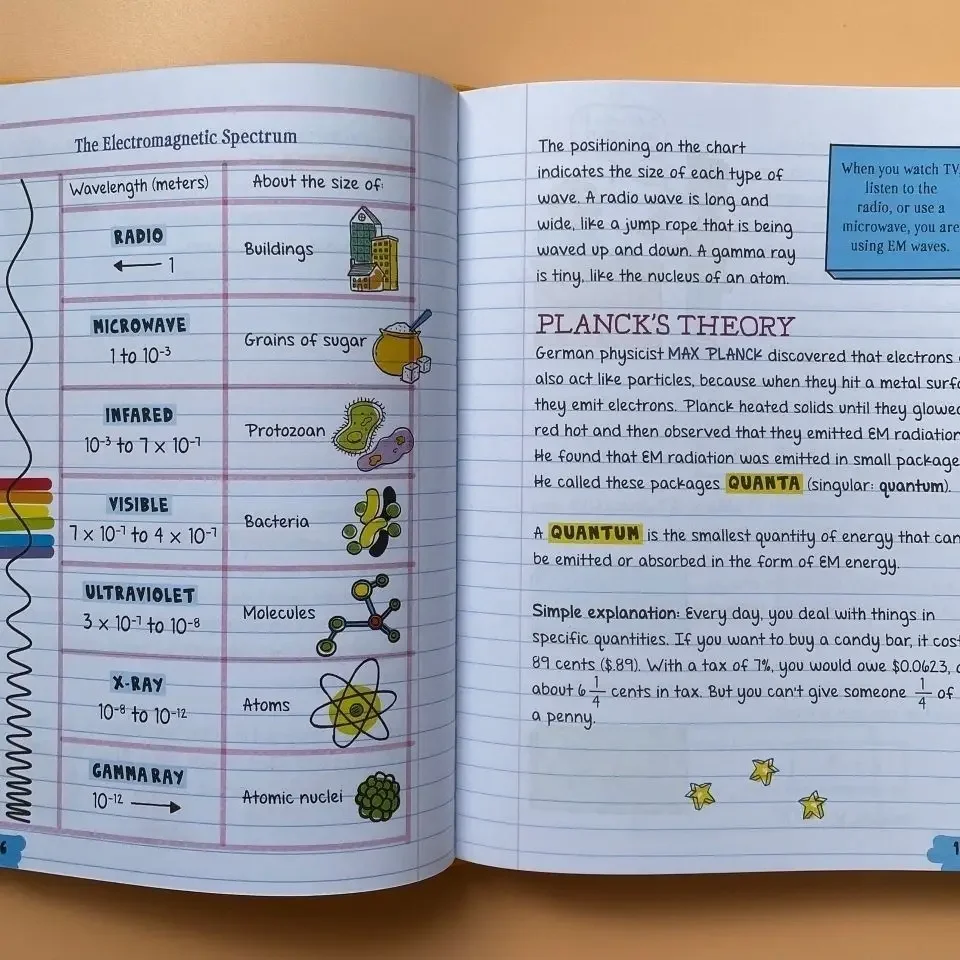 The Electromagnetic Spectrum
Wavelength (meters) About the size of:
RADIO
← 1
Buildings
MICROWAVE
1 to 10⁻³
Grains of sugar
INFARED
10⁻³ to 7 x 10⁻⁷
Protozoan
VISIBLE
7 x 10⁻⁷ to 4 x 10⁻⁷
Bacteria
ULTRAVIOLET
3 x 10⁻⁷ to 10⁻⁸
Molecules
X-RAY
10⁻⁸ to 10⁻¹²
Atoms
GAMMA RAY
10⁻¹² →
Atomic nuclei
6
The positioning on the chart
indicates the size of each type of
wave. A radio wave is long and
wide, like a jump rope that is being
waved up and down. A gamma ray
is tiny, like the nucleus of an atom.
When you watch TV,
listen to the
radio, or use a
microwave, you are
using EM waves.
PLANCK'S THEORY
German physicist MAX PLANCK discovered that electrons
also act like particles, because when they hit a metal surfa
they emit electrons. Planck heated solids until they glowed
red hot and then observed that they emitted EM radiation
He found that EM radiation was emitted in small package
He called these packages QUANTA (singular: quantum).
A QUANTUM is the smallest quantity of energy that can
be emitted or absorbed in the form of EM energy.
Simple explanation: Every day, you deal with things in
specific quantities. If you want to buy a candy bar, it cost
89 cents ($.89). With a tax of 7%, you would owe $0.0623,
about 6 1/4 cents in tax. But you can't give someone 1/4 of
a penny.
1